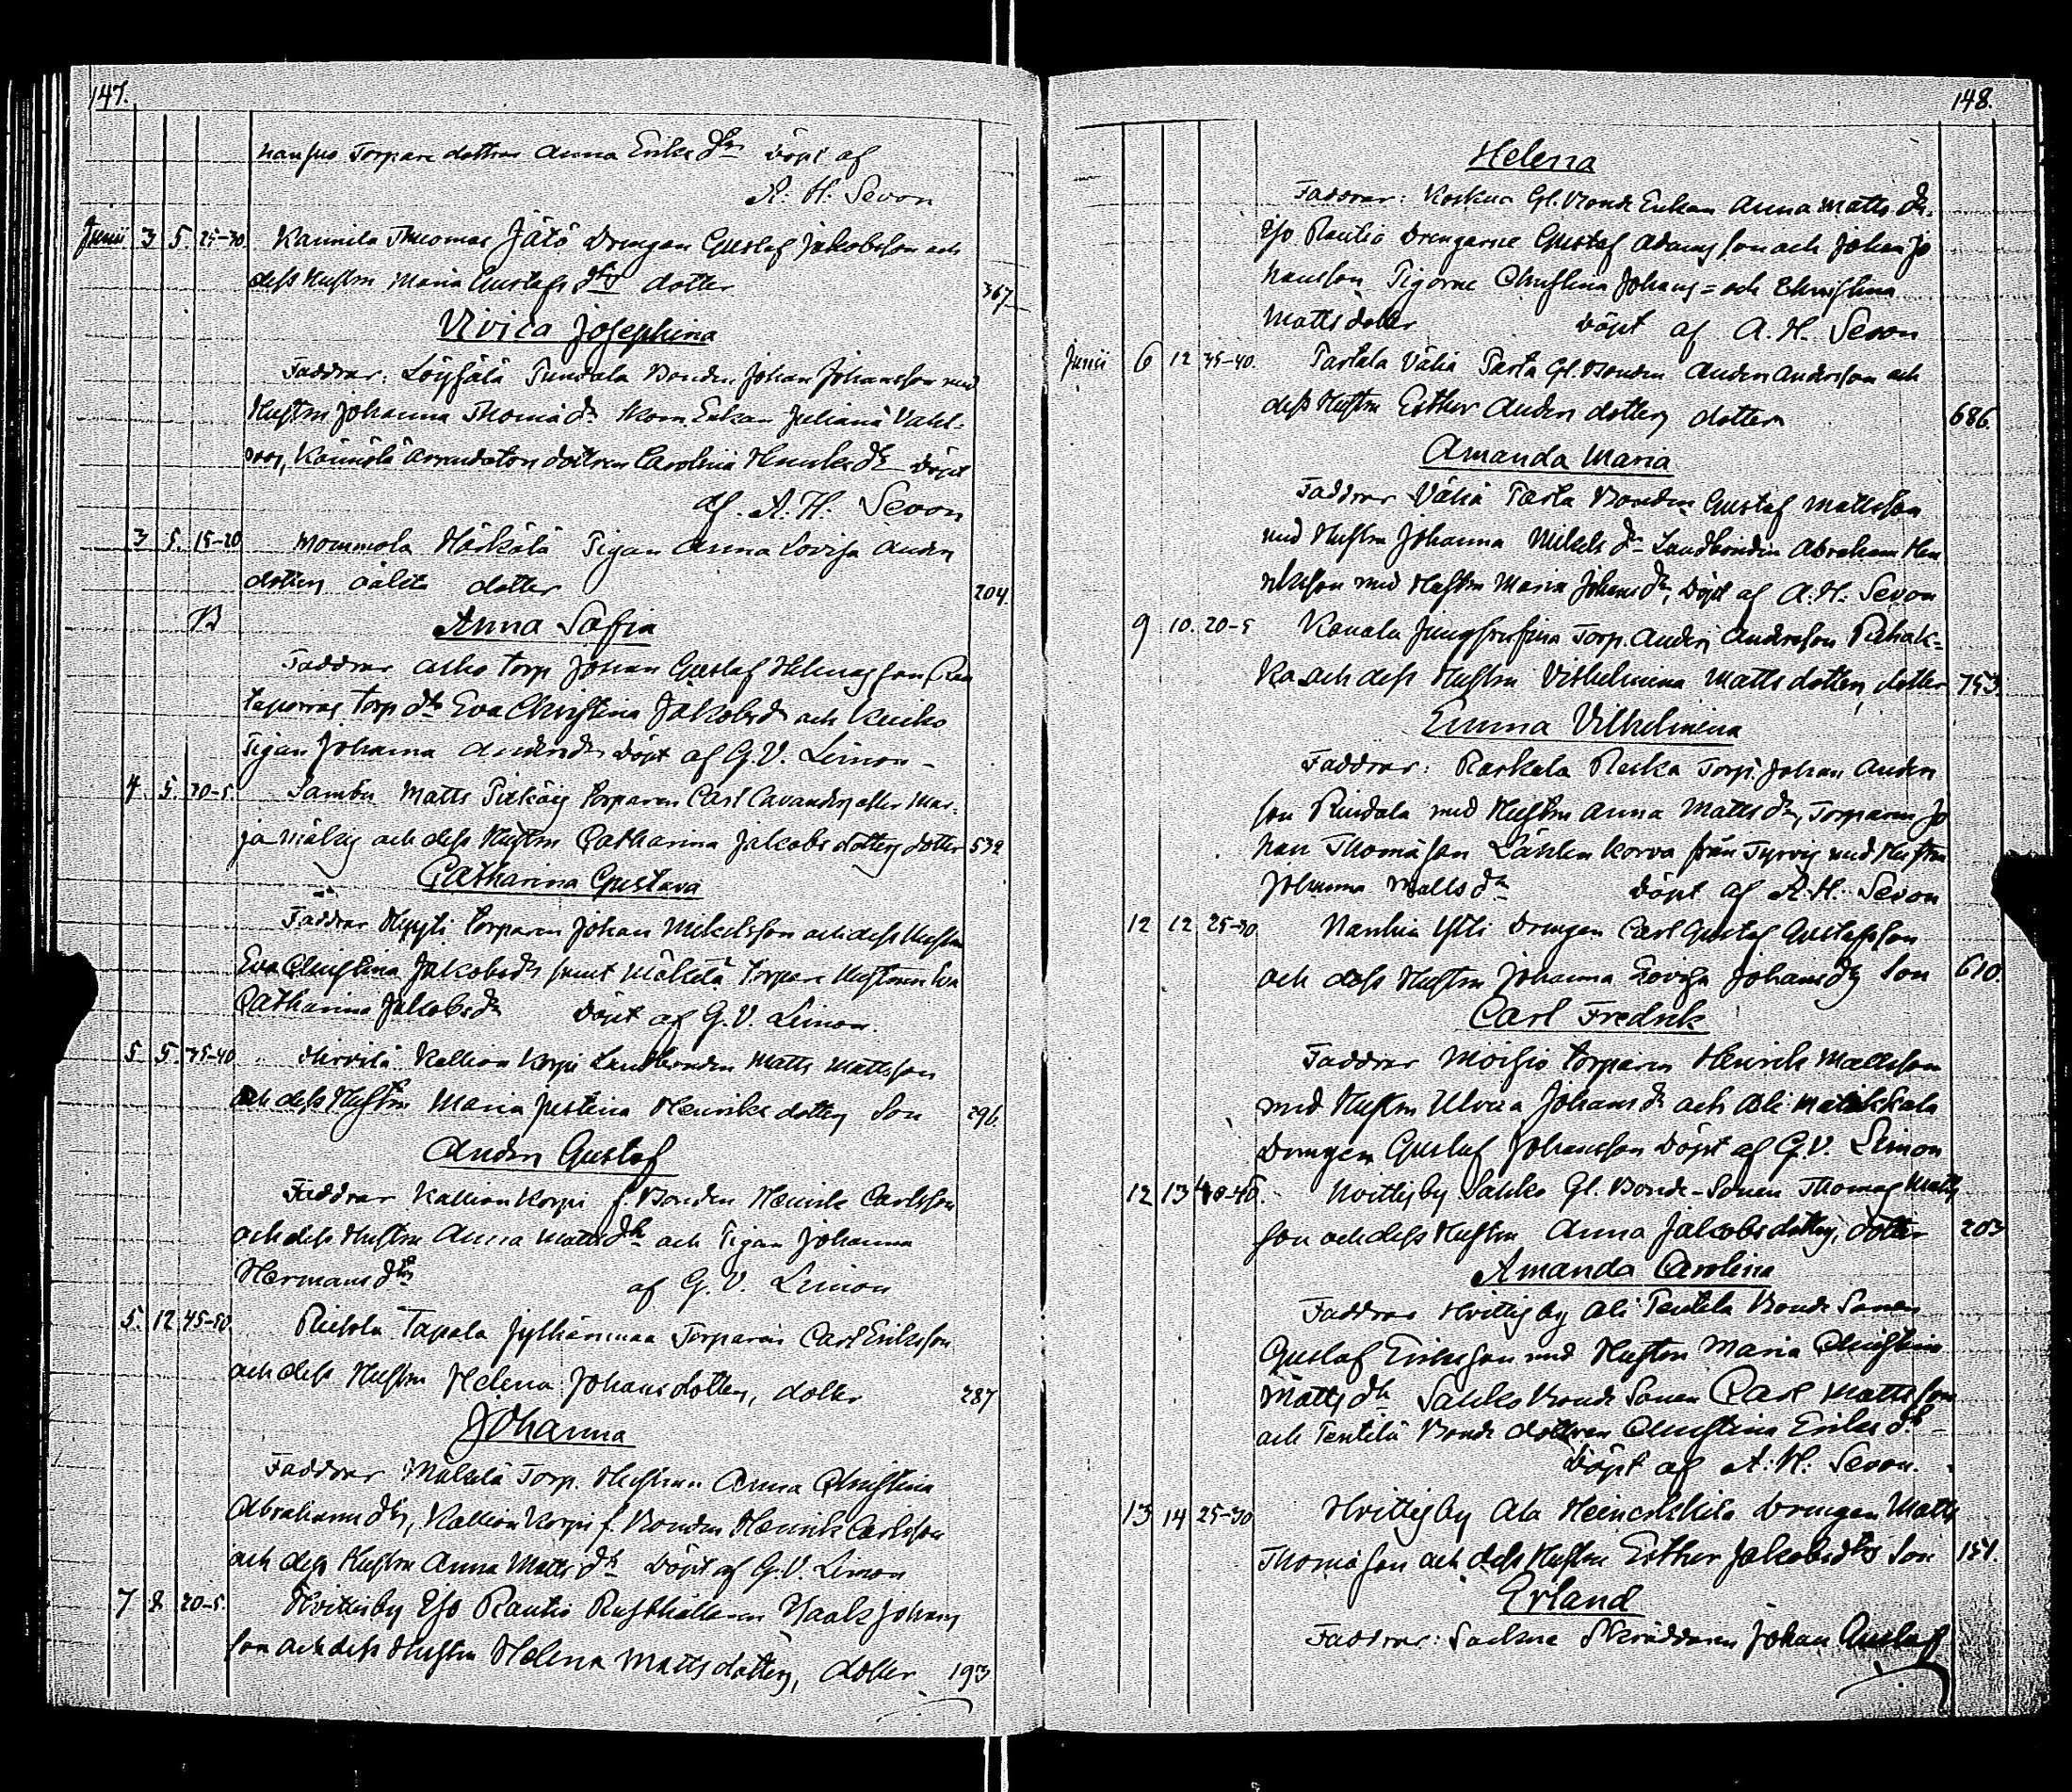 147.
Torpare dottren Anna Eriks dr. döpt af
A. H. Sevon
Junii 3 5. 25-30 Kannila Thuomas Jätö Drengen Gustaf Jakobsson och
dess Hustru Maria Gustafs dtrs dotter 367
Vivica Josephina
Faddrar: Löysälä Bonden Johan Johansson med
Hustru Johanna Thomä dr. Enkan Juliana Vahl-
roos, arrendators dottren Carolina Henriks dr döpt
af A. H. Sevon
3 5. 15-20 Mommola Härkälä Pigan Anna Lovisa Anders
dotters oäkta dotter 204.
B Anna Sofia
Faddrar torp Johan Gustaf
torp dtr Eva Christina Jakobsdr och
Pigan Johanna Andersdr döpt af G. V. Limon
4 5. 30-5. Sambu Matts torparen Carl eller
och dess Hustru Catharina Jakobs dotters dotter 532
Catharina Gustava
Faddrar torparen Johan Mikelsson och dess Hustru
Eva Christina Jakobsdr samt Mäkilä torpare Hustrun Eva
Catharina Jakobsdr döpt af G. V. Limon.
5 5. 35-40 Kallion Korpi Landbonden Matts Mattsson
och dess Hustru Maria Justina Henriks dotters Son 296.
Anders Gustaf
Faddrar Kallion Korpi f. Bonden Henrik Carlsson
och dess Hustru Anna Matts dr och Pigan Johanna
Hermans dtr af G. V. Limon
5. 12 45-50. Tapala Torparen Carl Eriksson
och dess Hustru Helena Johans dotters, dotter 287
Johanna
Faddrar Mäkelä Torp. Hustrun Anna Christina
Abrahams dtr, Kallion Korpi f. Bonden Henrik Carlsson
och dess Hustru Anna Matts dr döpt af G. V. Limon
7 8 20-5. Hvittisby Iso Rautio Rusthållaren Isaak Johans
son och dess Hustru Helena Matts dotters, dotter 193
148.
Helena
Faddrar: Gl. Bonde Enkan Anna Matts dr.
Iso Rautio Drengarne Gustaf Adamsson och Johan Jo
hansson, Pigorne Christina Johans= och Christina
Matts dotter döpt af A. H. Sevon
Junii 6 12 35-40. Vähä Gl. Bonden Anders Andersson och
dess Hustru Esther Anders dotters dotter 686.
Amanda Maria
Faddrar Vähä Bonden Gustaf Mattsson
med Hustru Johanna Mikels dr Landbonden Abraham Hen
riksson med Hustru Maria Johans dr, döpt af A. H. Sevon
9 10. 20-5 Torp. Anders Andersson
och dess Hustru Vilhelmina Matts dotters, dotter 753.
Emma Vilhelmina
Faddrar: Torp. Johan Anders
son med Hustru Anna Matts dr, Torparen Jo
han Thomäson korva från Tyrvis med Hustru
Johanna Matts dr döpt af A. H. Sevon
12 12 25-30 Drengen Carl Gustaf Gustafsson
och dess Hustru Johanna Lovisa Johans dtrs Son 610.
Carl Fredrik
Faddrar Moisio torparen Henrik Mattsson
med Hustru Ulrica Johans dr och
Drengen Gustaf Johansson döpt af G. V. Limon
12 13 40-45. Hvittisby Sahko Gl. Bonde-Sonen Thomas Matts
son och dess Hustru Anna Jakobs dotters, dotter 203
Amanda Carolina
Faddrar Hvittisby Ali Pentila Bonde Sonen
Gustaf Eriksson med Hustru Maria Christina
Matts dtr Sahko Bonde Sonen Carl Mattsson
och Pentilä Bonde dottren Christina Eriks dr.
döpt af A. H. Sevon.
13 14 25-30 Hvittisby Ala Drengen Matts
Thomäson och dess Hustru Esther Jakobs dtrs Son 154.
Erland
Faddrar: Skräddaren Johan Gustaf